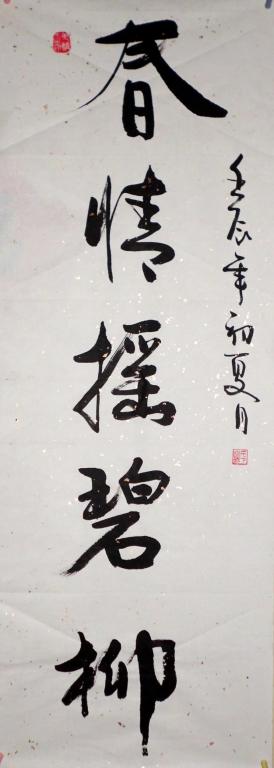 春情摇碧柳
壬辰年初夏月